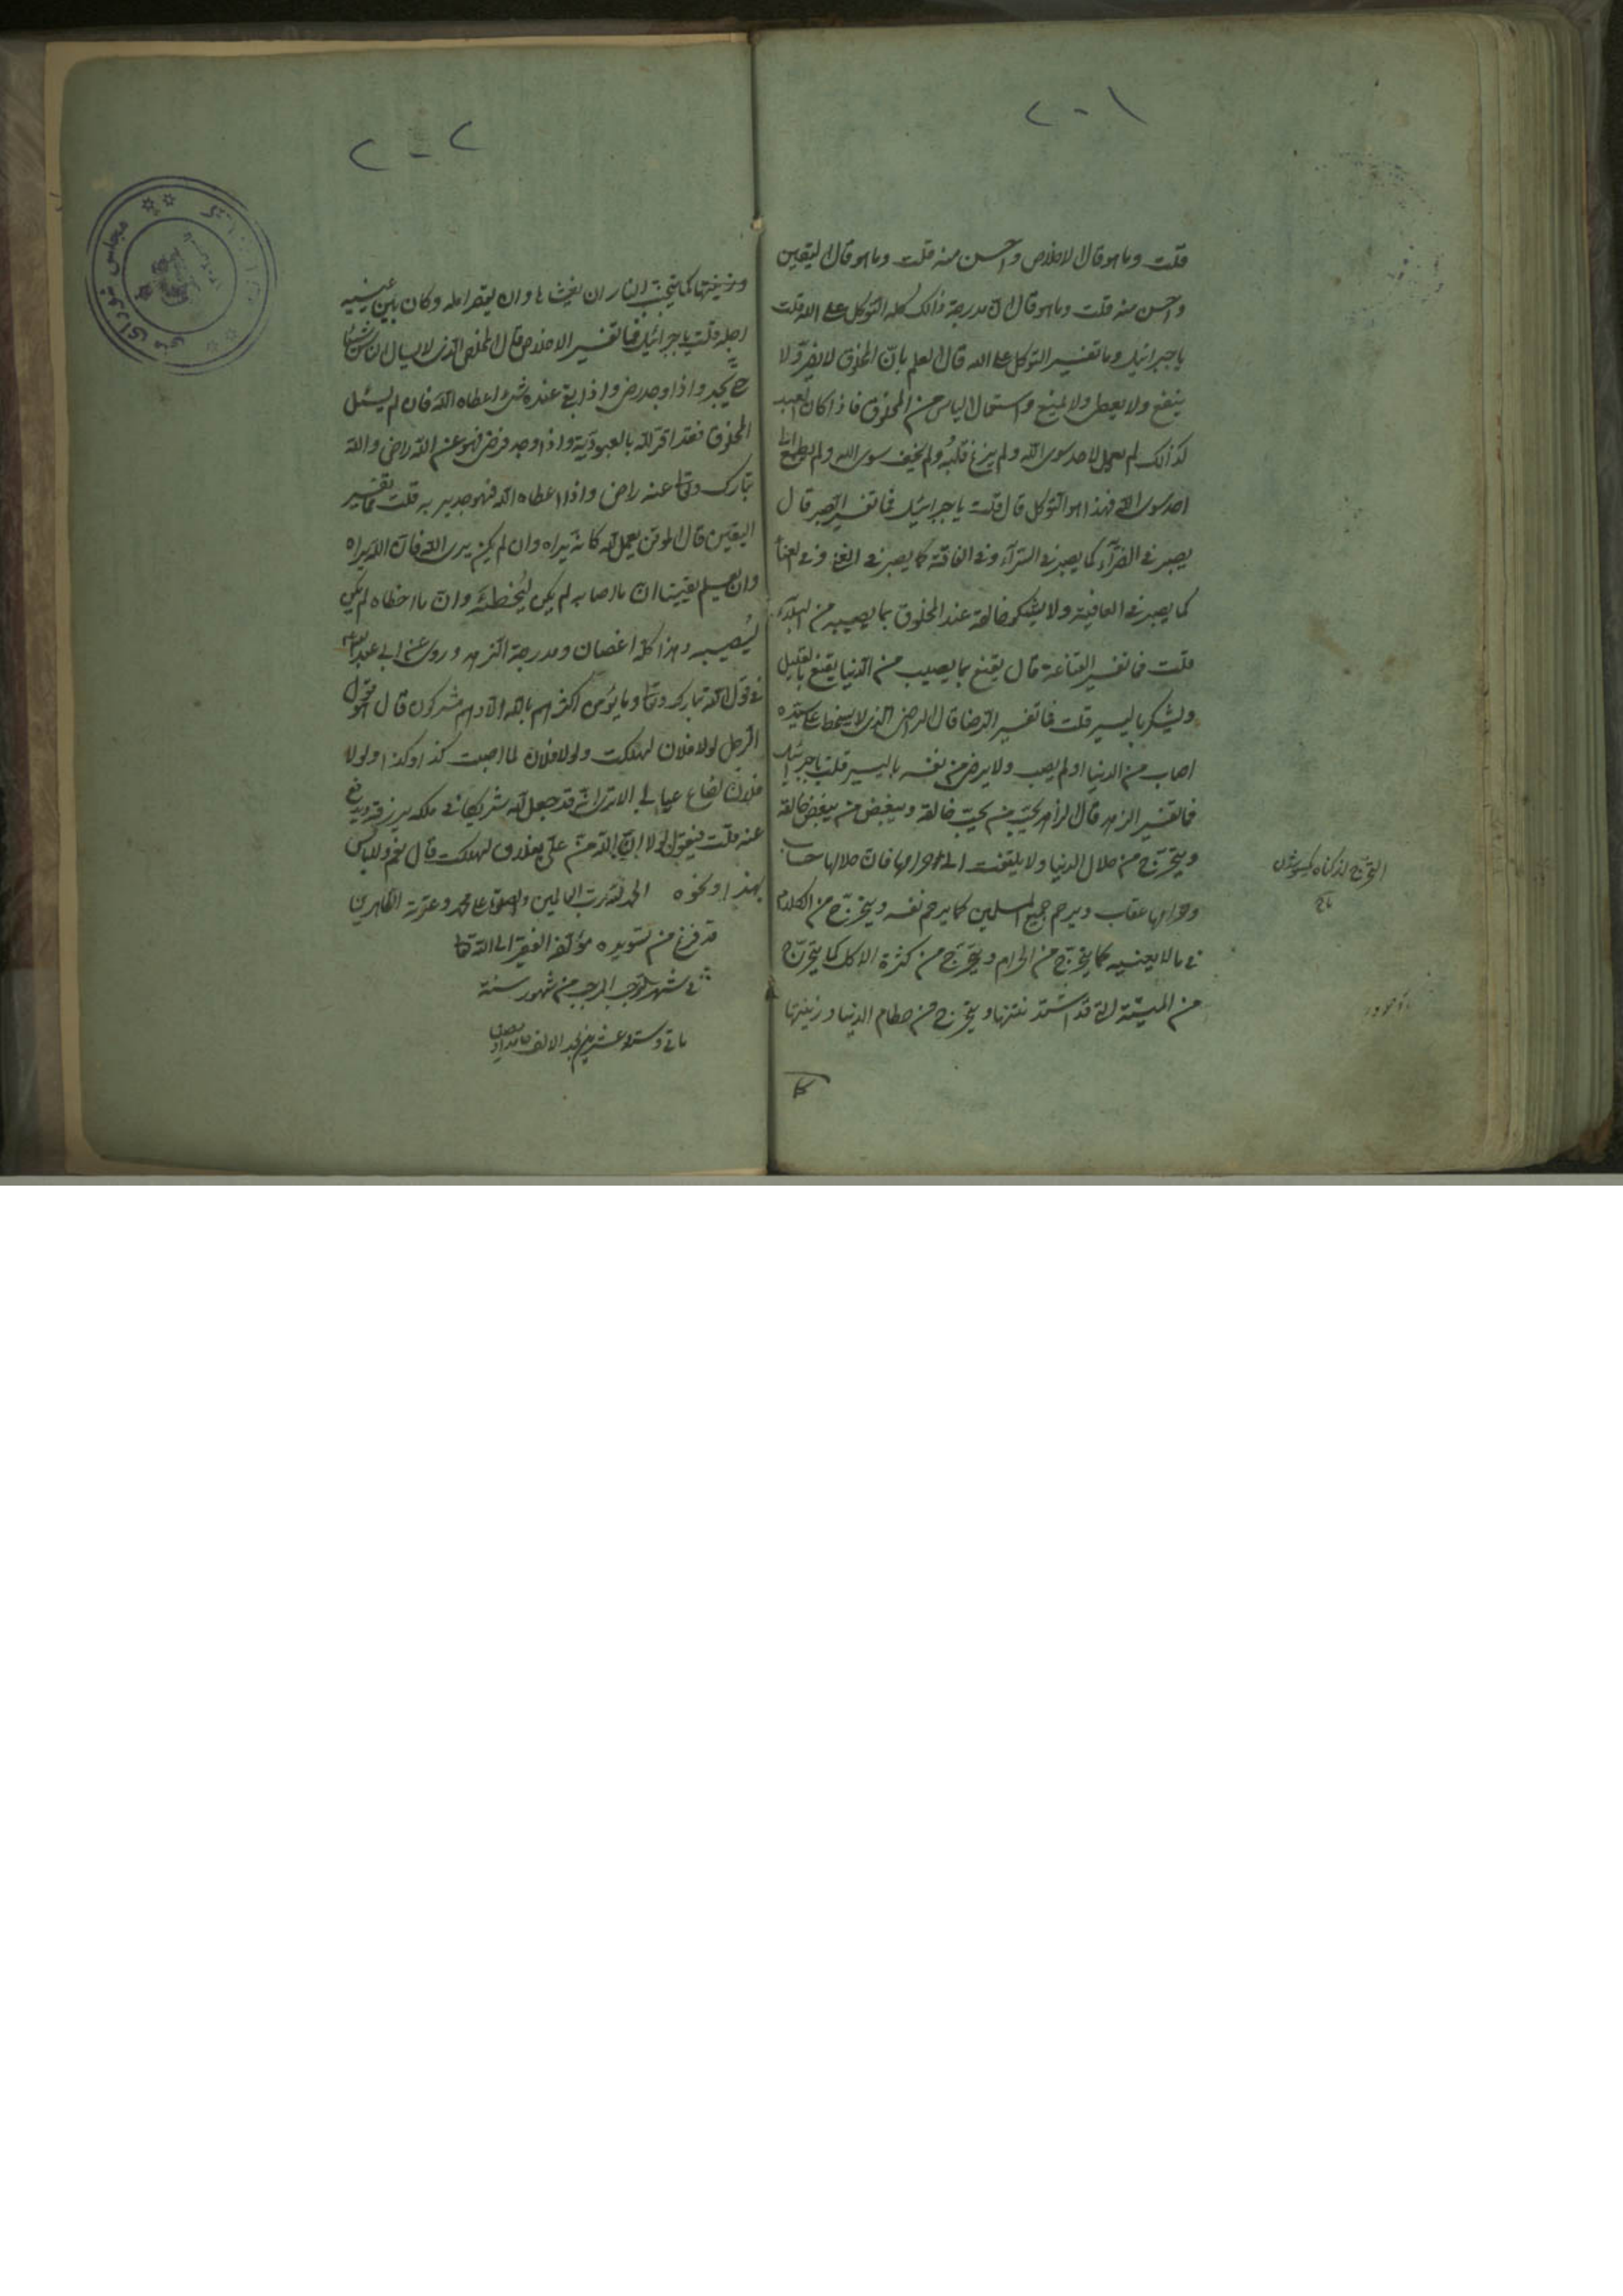 ٢٠١
قلت وما هو قال الاخلاص واحسن منه قلت وما هو قال اليقين
واحسن منه قلت وما هو قال ان مدرجة ذالك كله التوكل على الله قلت
يا جبرائيل وما تفسير التوكل على الله قال العلم بانّ المخلوق لا يضرّ ولا
ينفع ولا يعطى ولا يمنع واستعمال الياس من المخلوق فاذا كان العبد
كذالك لم يعمل لاحد سوى الله ولم يزغ قلبه ولم يخف سوى الله ولم يطمع الى
احد سوى الله فهذا هو التوكل قال قلت يا جبرائيل فما تفسير الصبر قال
يصبر فى الضرّآء كما يصبر فى السرّآء وفى الفاقة كما يصبر فى الغنى وفى العناء
كما يصبر فى العافية ولا يشكو خالقه عند المخلوق بما يصيبه من البلآء
قلت فما تفسير القناعة قال يقنع بما يصيب من الدنيا يقنع بالقليل
ويشكر باليسير قلت فما تفسير الرضا قال الراضى الذى لا يسخط على سيّده
اصاب من الدنيا او لم يصب ولا يرضى من نفسه باليسير قلت يا جبرائيل
فما تفسير الزهد قال الزاهد يحبّ من يحبّ خالقه ويبغض من يبغض خالقه
ويتحرّج من حلال الدنيا ولا يلتفت الى حرامها فانّ حلالها حساب
وحرامها عقاب ويرحم جميع المسلمين كما يرحم نفسه ويتحرّج من الكلام
فى ما لا يعنيه كما يتحرّج من الحرام ويتحرّج من كثرة الاكل كما يتحرّج
من الميتة التى قد اشتدّ نتنها ويتحرّج من حطام الدنيا وزينتها
كما
التحرّج
تاج
٢٠٢
وزينتها كما يتجنّب النار ان يغشاها وان يقصر امله وكان بين عينيه
اجله قلت يا جبرائيل فما تفسير الاخلاص قال المخلص الذى لا يسال الناس شيئا
حتى يجد واذا وجد رضى واذا بقى عنده شىء اعطاه الله فان لم يسئل
المخلوق فقد اقرّ لله بالعبوديّة واذا وجد فرضى فهو عن الله راض والله
تبارك وتعا عنه راض واذا اعطاه الله فهو جدير به قلت فما تفسير
اليقين قال الموقن يعمل لله كانّه يراه وان لم يكن يرى الله فانّ الله يراه
وان يعلم يقينا انّ ما اصابه لم يكن ليخطئه وانّ ما اخطاه لم يكن
ليصيبه وهذا كلّه اغصان ومدرجة الزهد وروى عن ابى عبد الله
فى قول الله تبارك وتعا وما يؤمن اكثرهم بالله الّا وهم مشركون قال هو قول
الرجل لولا فلان لهلكت ولولا فلان لما اصبت كذا وكذا ولولا
فلان لضاع عيالى الا ترى انّه قد جعل لله شريكا فى ملكه يرزقه ويدفع
عنه قلت فيقول لولا انّ الله منّ علىّ بفلان لهلكت قال نعم لا باس
بهذا ونحوه الحمد لله ربّ العالمين والصلوة على محمد وعترته الطاهرين
قد فرغ من تسويده مؤلفه الفقير الى الله تعا
فى شهر رجب المرجب من شهور سنة
مأتى وستة وعشرين بعد الالف
مجلس شوراى ملى